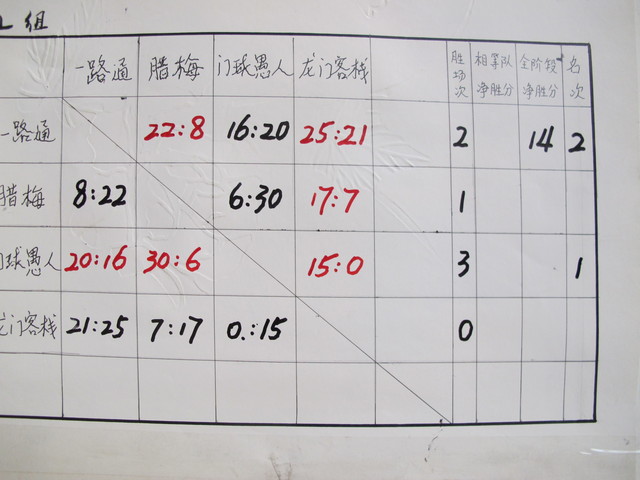 组
一路通 腊梅 门球愚人 龙门客栈 胜场次 相等队净胜分 全阶段净胜分 名次
一路通 22:8 16:20 25:21 2 14 2
腊梅 8:22 6:30 17:7 1
球愚人 20:16 30:6 15:0 3 1
龙门客栈 21:25 7:17 0:15 0